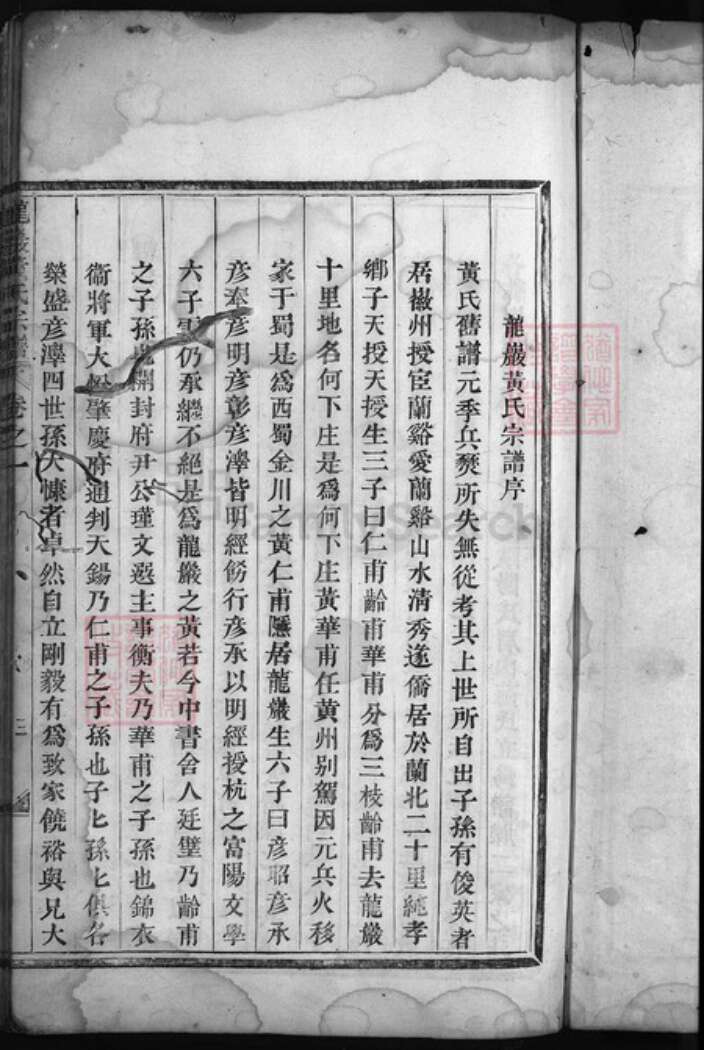 龍巖黃氏宗譜序
黃氏舊譜元季兵燹所失無從考其上世所自出子孫有俊英者
居徽州授宦蘭谿愛蘭谿山水清秀遂僑居於蘭北二十里純孝
鄉子天授天授生三子曰仁甫齡甫華甫分為三枝齡甫去龍巖
十里地名何下庄是為何下庄黃華甫任黃州别駕因元兵火移
家于蜀是為西蜀金川之黃仁甫匯居龍巖生六子曰彥昭彥承
彥奉彥明彥彰彥澤皆明經飭行彥承以明經授杭之富陽文學
六子仍承繼不絕是為龍巖之黃若今中書舍人廷璧乃齡甫
之子孫也開封府尹公瑾文選主事衡夫乃華甫之子孫也錦衣
衞將軍大肇慶府通判天錫乃仁甫之子孫也子匕孫匕俱各
榮盛彥澤四世孫大慷者卓然自立剛毅有為致家饒裕與兄大
龍巖黃氏宗譜
卷之一
序
三
FamilySearch